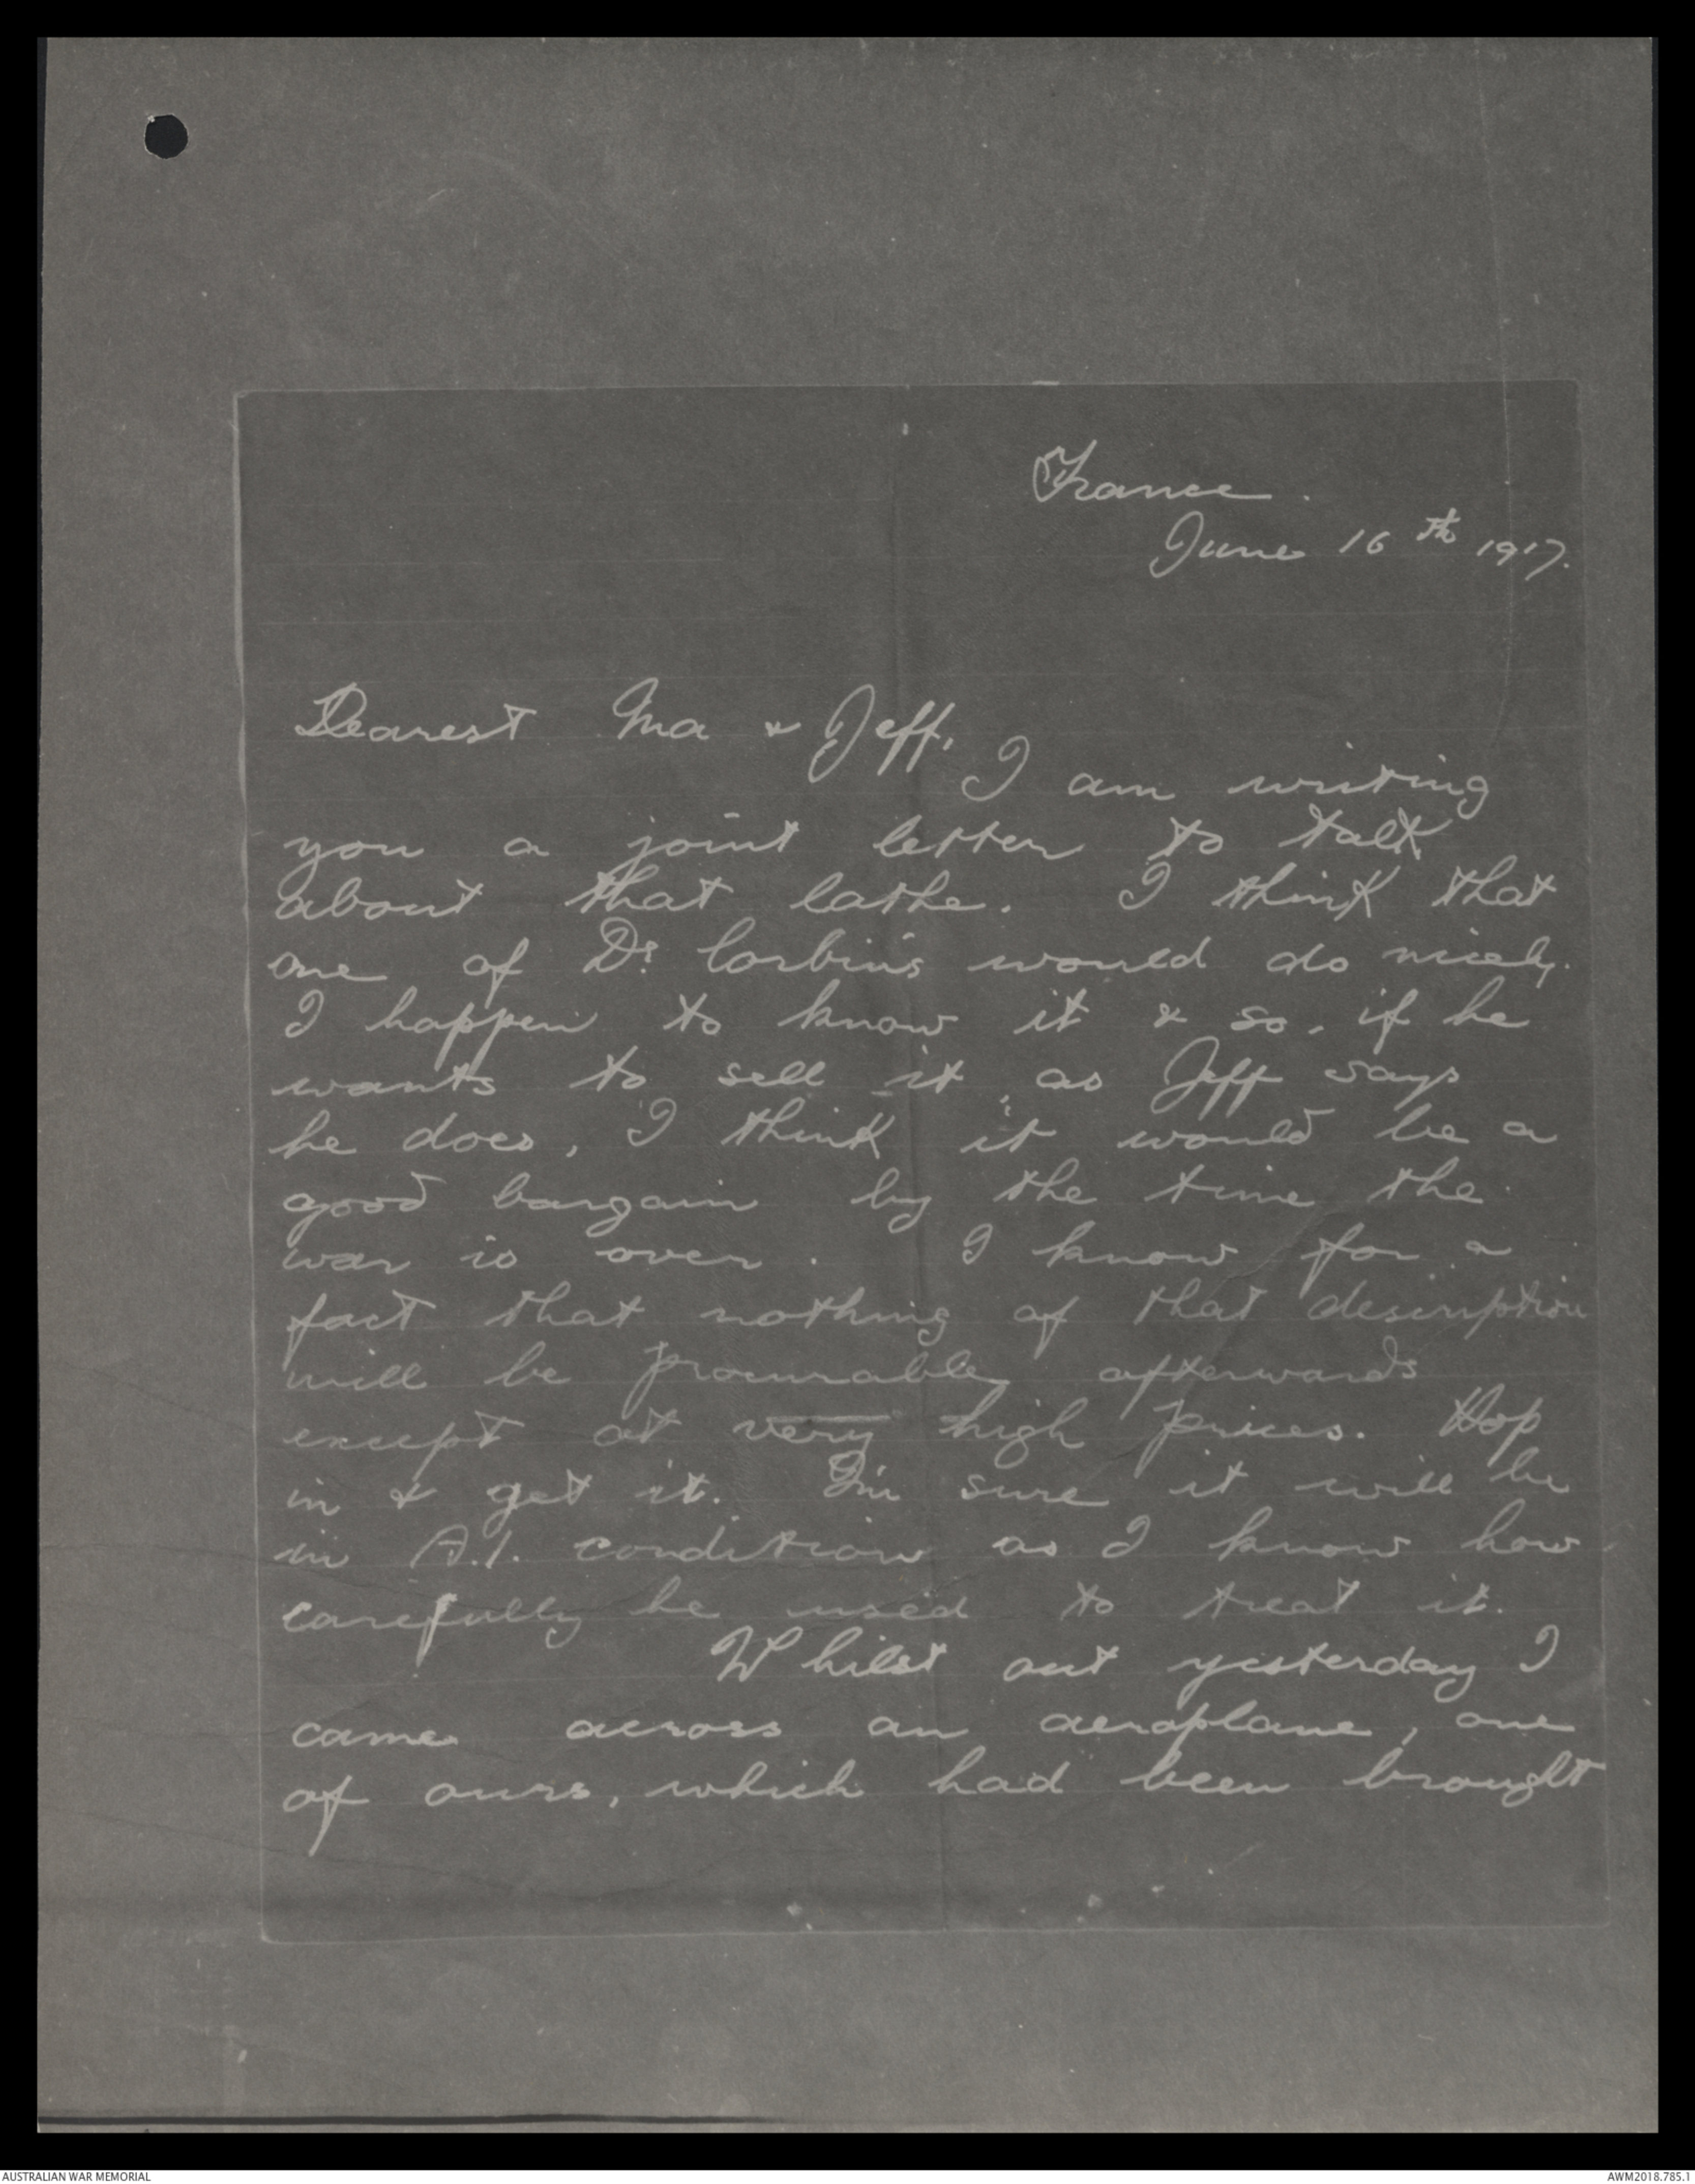 France.
June 16th 1917.
Dearest Ma & Jeff,
I am writing
you a joint letter to talk
about that lathe. I think that
one of Dr. Corbin's would do nicely.
I happen to know it & so, if he
wants to sell it, as Jeff says
he does, I think it would be a
good bargain by the time the
war is over. I know for a
fact that nothing of that description
will be procurable afterwards
except at very high prices. Hop
in & get it. I'm sure it will be
in A.1. condition as I know how
carefully he used to treat it.
Whilst out yesterday I
came across an aeroplane, one
of ours, which had been brought
AUSTRALIAN WAR MEMORIAL
AWM2018.785.1